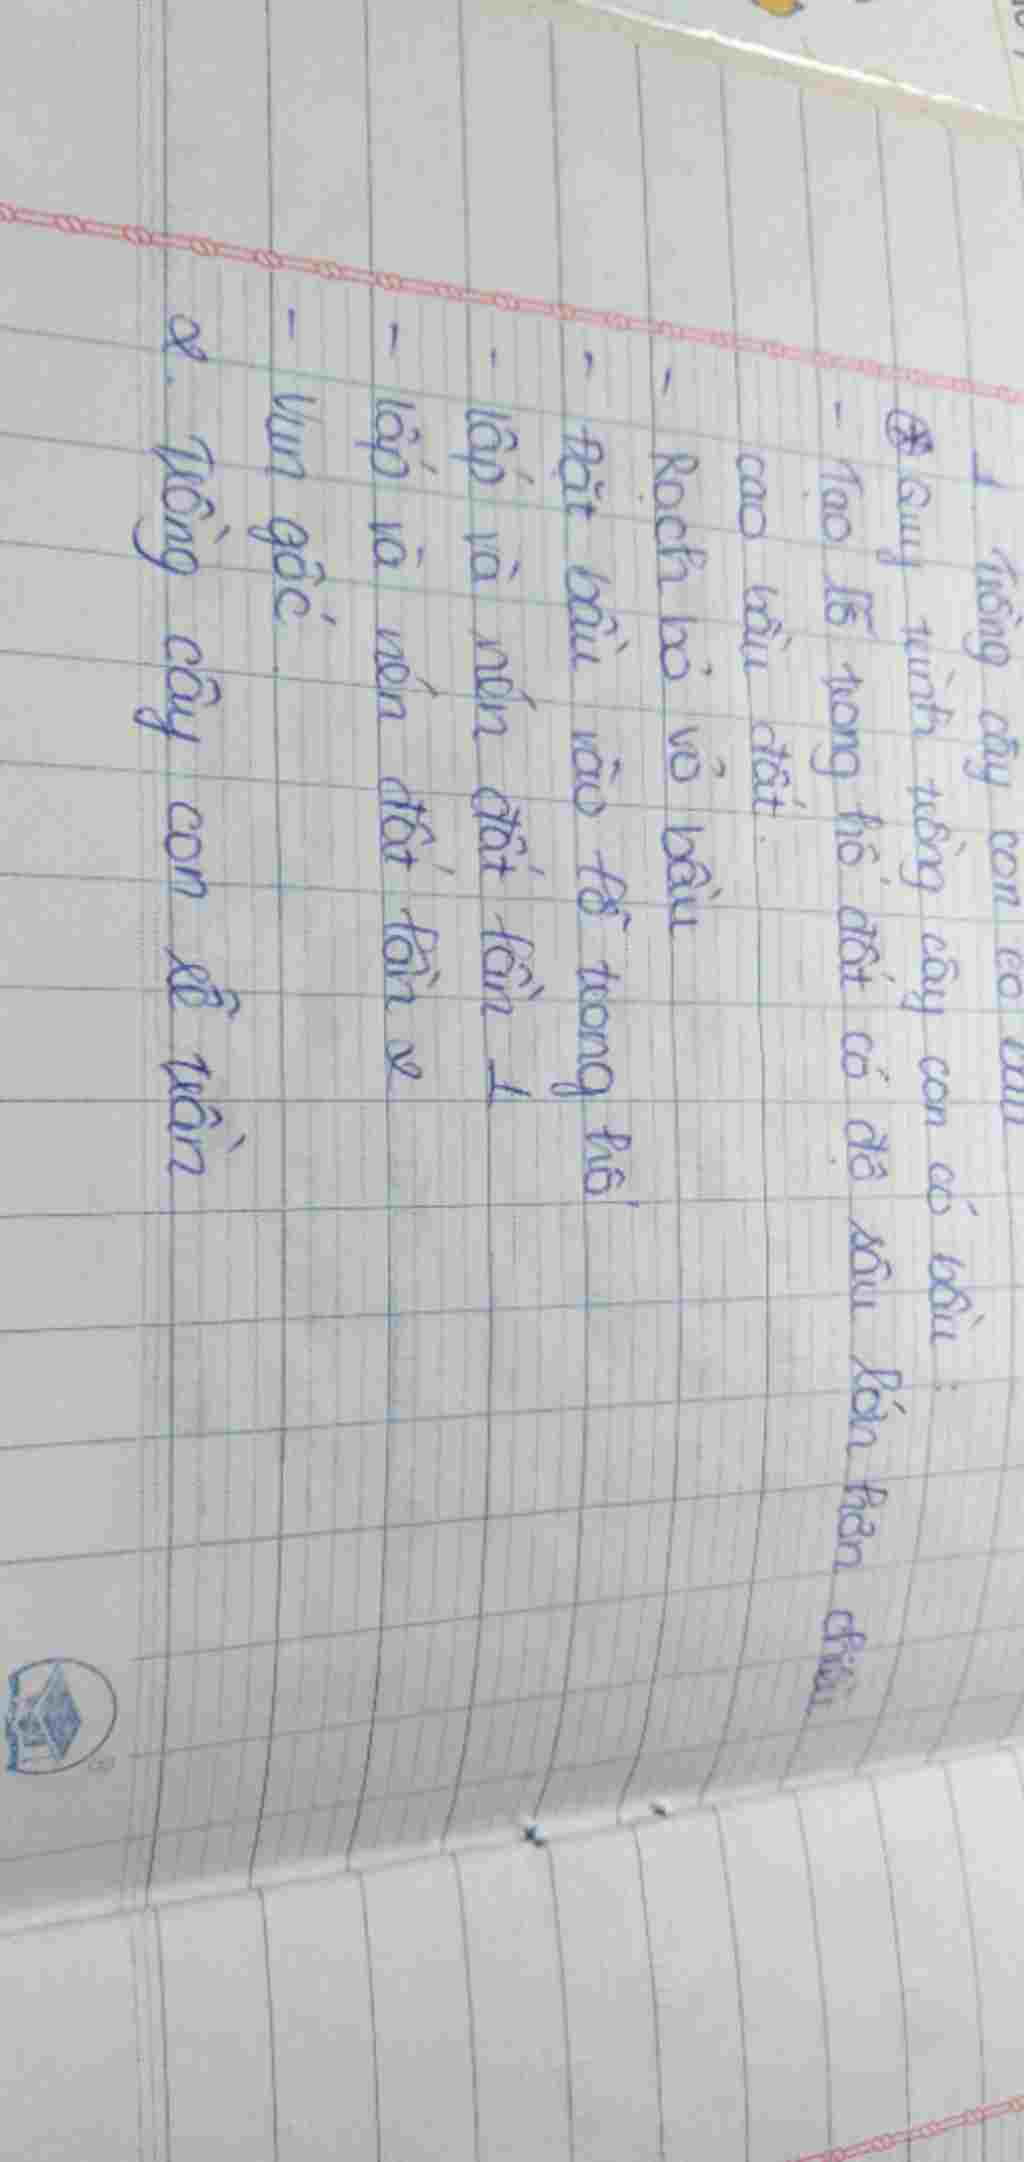 1 Trồng cây con có bầu
⊛ Quy trình trồng cây con có bầu :
- Tạo lỗ trong hố đất có độ sâu lớn hơn chiều
cao bầu đất.
- Rạch bỏ vỏ bầu
- Đặt bầu vào lỗ trong hố
- lấp và nén đất lần 1
- lấp và nén đất lần 2
- Vun gốc
2. Trồng cây con rễ trần